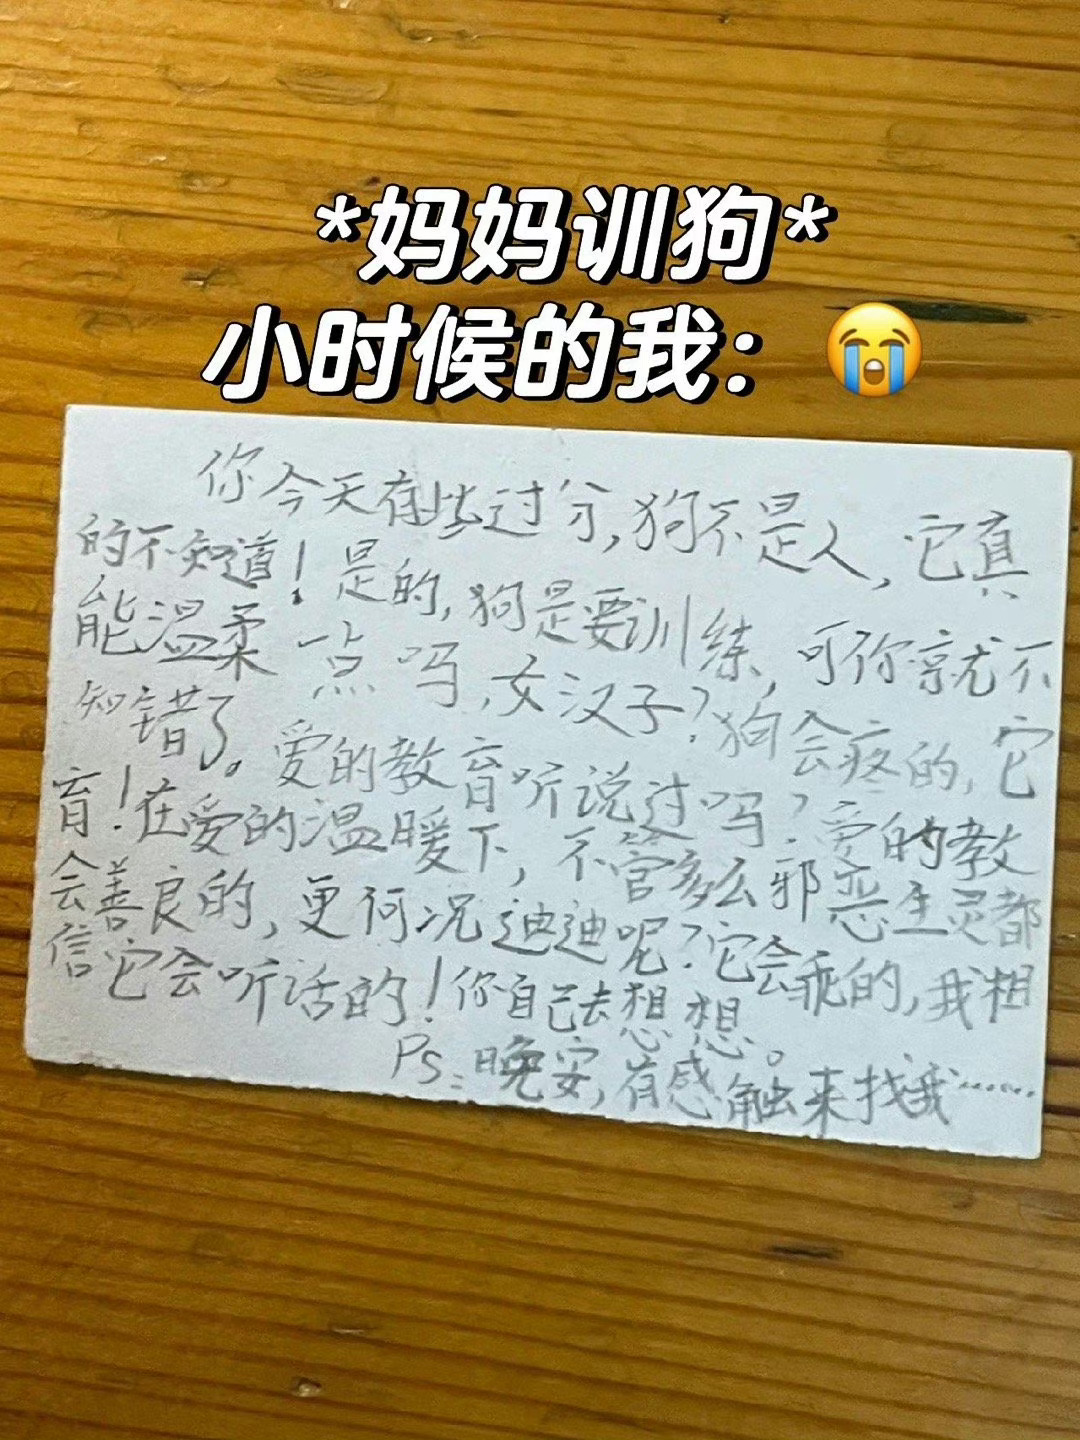 *妈妈训狗*
小时候的我：😭
你今天有些过分,狗不是人,它真
的不知道!是的,狗是要训练,可你就不
能温柔一点吗,女汉子?狗会疼的,它
知错了。爱的教育听说过吗?爱的教
育!在爱的温暖下,不管多么邪恶生灵都
会善良的,更何况迪迪呢?它会乖的,我相
信它会听话的!你自己去想想。
Ps:晚安,有感触来找我……